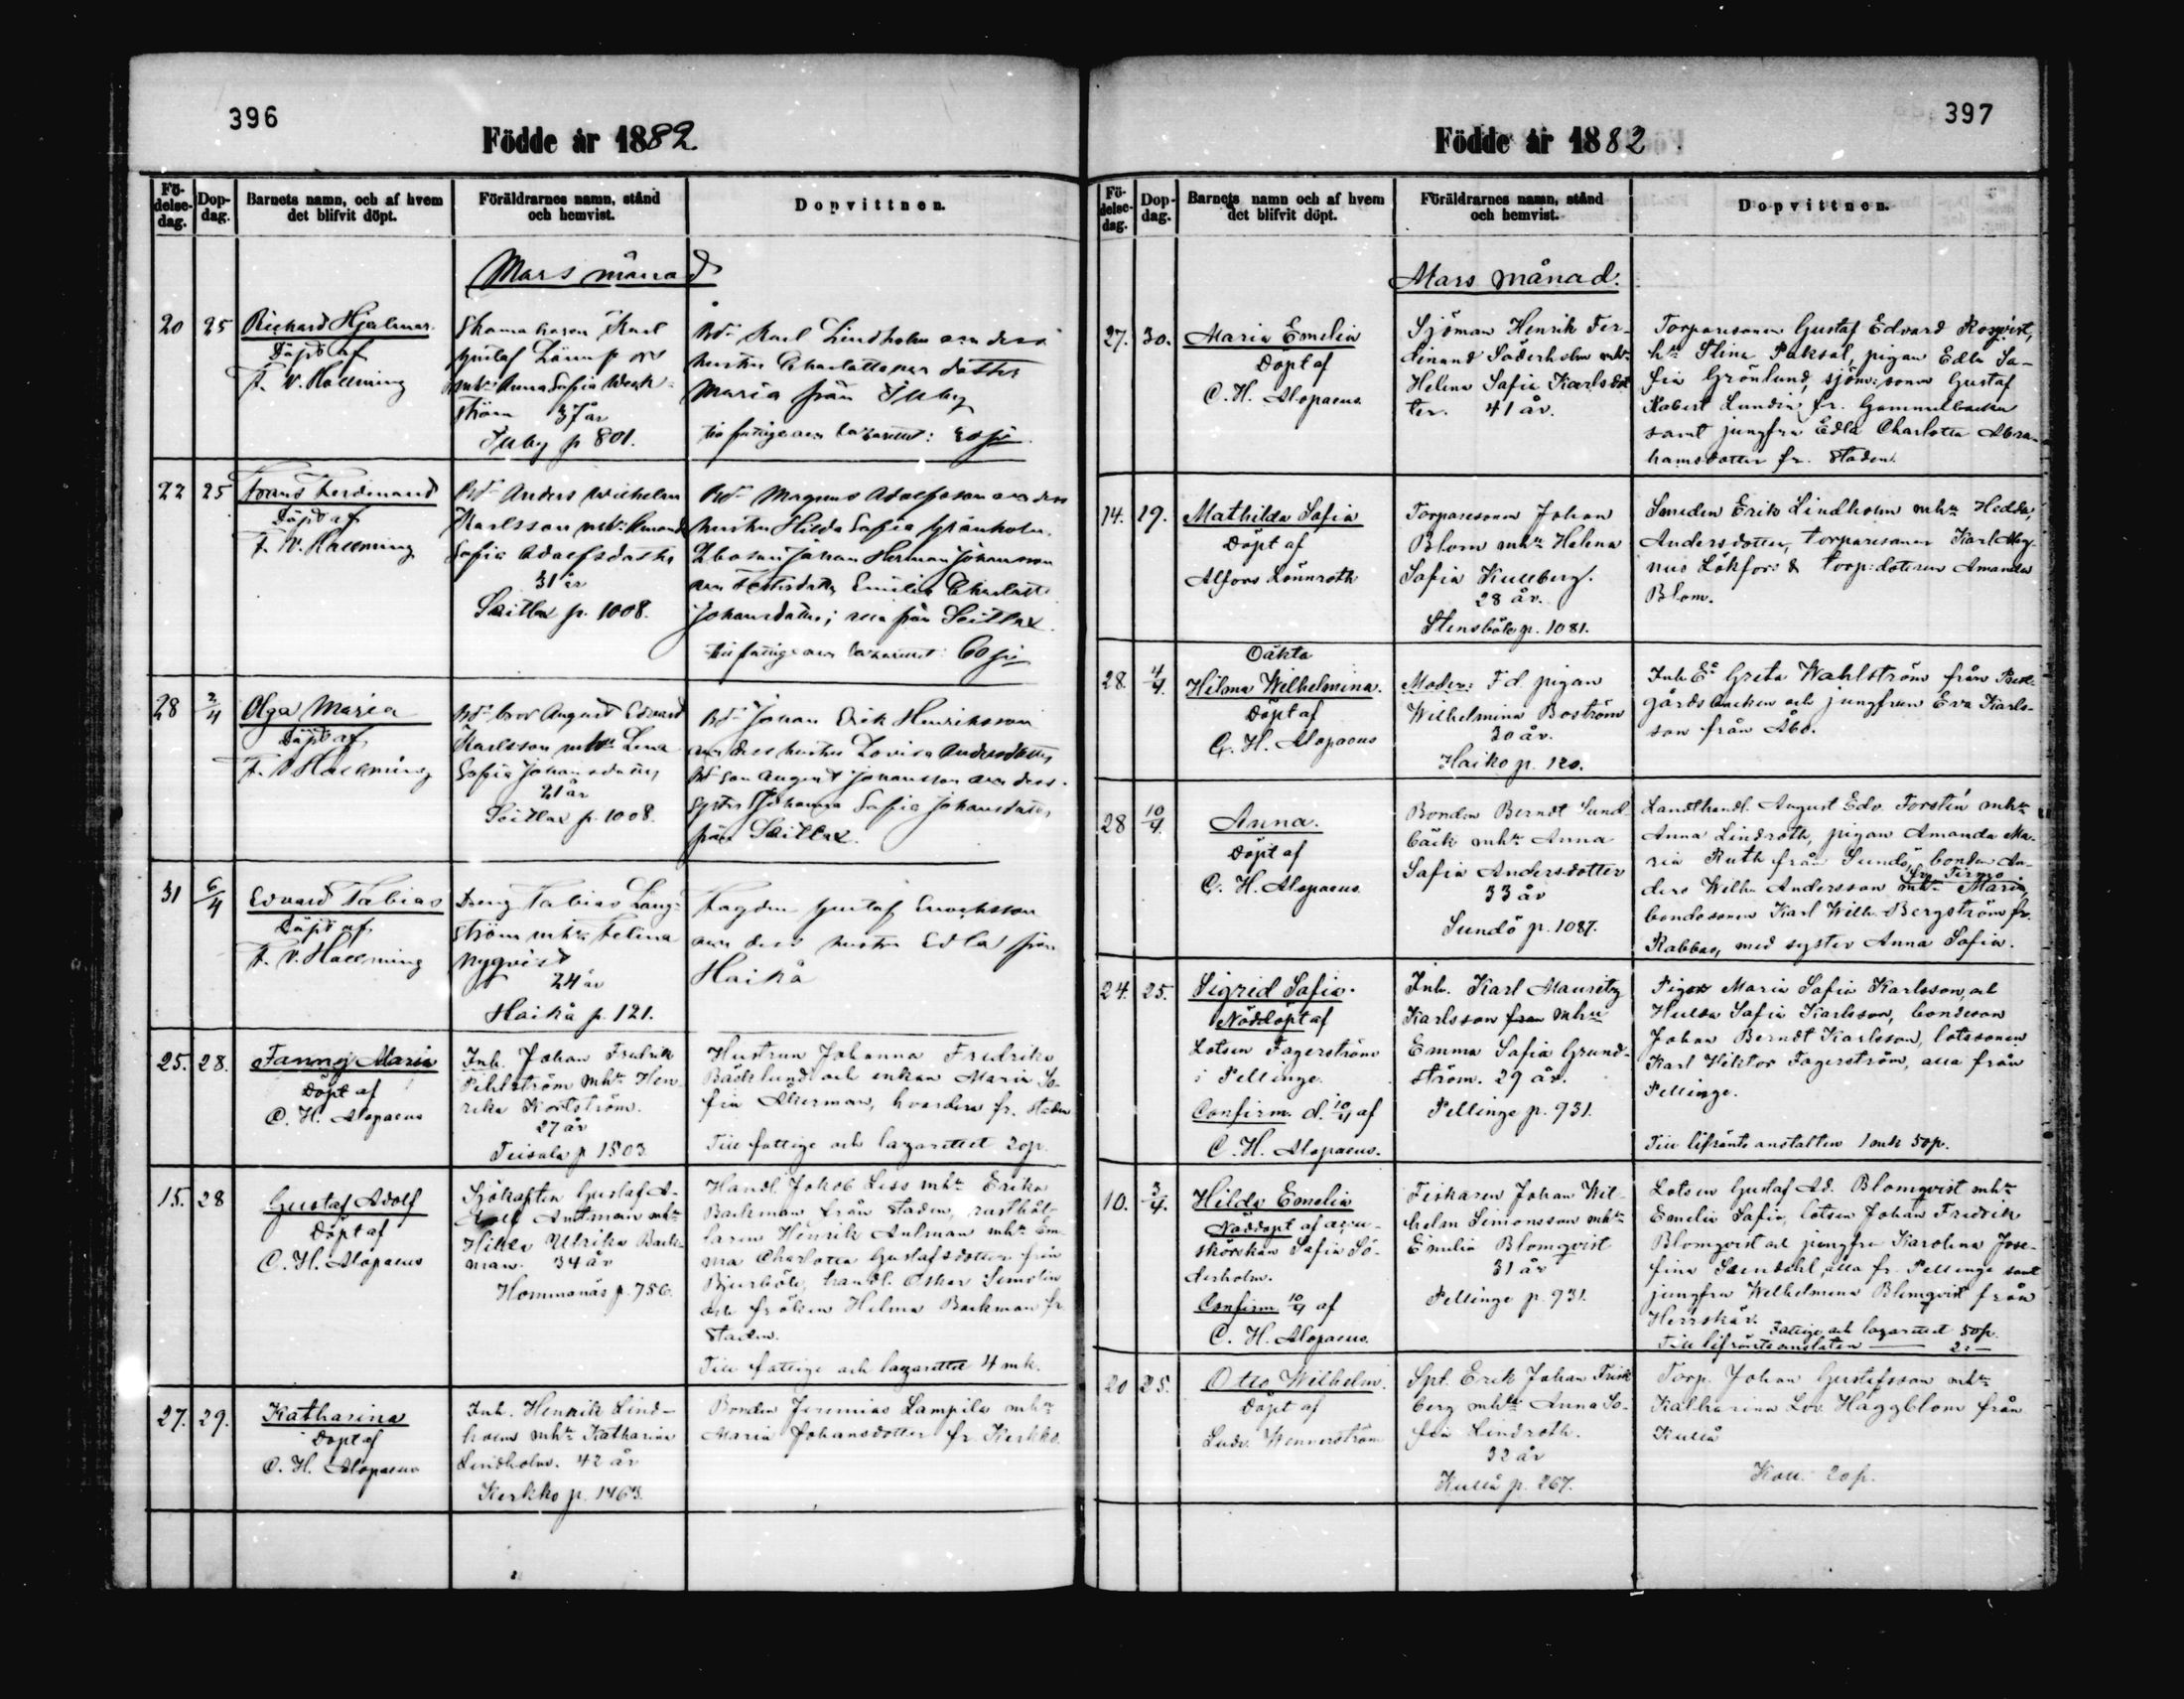 396
Födde år 1882.
Fö-
delse-
dag.
Dop-
dag.
Barnets namn, och af hvem
det blifvit döpt.
Föräldrarnes namn, stånd
och hemvist.
Dopvittnen.
Mars månad
20 25 Richard Hjalmar
Döpt af
F. W. Hallming
Skomakaren Karl
Gustaf
Anna Sofia Wek-
ström 37 år
p 801.
Karl Lindholm dess
hustru Charlotta dotter
Maria från
22 25 Frans Ferdinand
Döpt af
F. W. Hallming
Anders Wilhelm
Karlsson
Sofia Adolfsdotter
31 år
Seitlax p. 1008.
Magnus Adolfsson dess
hustru Hilda Sofia Granholm.
Johan Herman Johansson
Emilia Charlotta
Johansdotter; alla från Seitlax.
60 pi
28 2/4 Olga Maria
Döpt af
F. W. Hallming
August Edvard
Karlsson mhu Lena
Sofia Johansdotter
21 år
Seitlax p. 1008.
Johan Erik Henriksson
dess hustru Lovisa Andersdotter
son August Johansson dess
syster Johanna Sofia Johansdotter
från Seitlax.
31 6/4 Edvard Tobias
Döpt af
F. W. Hallming
Dreng Tobias Lång-
ström mhu Felina
Nyqvist
24 år
Haikå p. 121.
Gustaf Enocksson
dess hustru Edla från
Haikå
25. 28. Fanny Maria
Döpt af
C. H. Alopaeus
Inh. Johan Fredrik
Pehlström mhu Hen-
rika Kortström.
27 år
Teisala p 1503
Hustrun Johanna Fredrika
Bäcklund och enkan Maria So-
fia Åkerman, hvardera fr. staden
Till fattige och lazarettet 20p.
15. 28 Gustaf Adolf
Döpt af
C. H. Alopaeus
Sjökapten Gustaf A-
dolf Antman mhu
Hilda Ulrika Back-
man. 34 år
Hommanäs p. 756.
Handl. Jakob Liss mhu Erika
Backman från staden, rusthål-
laren Henrik Antman mhu Em-
ma Charlotta Gustafsdotter från
Bjurböle, handl. Oskar Simolin
och fröken Hilma Backman fr.
staden.
Till fattige och lazarettet 4 mk.
27. 29. Katharina
Döpt af
C. H. Alopaeus
Inh. Henrik Lind-
holm mhu Katharina
Lindholm. 42 år
Kerkko p. 1463.
Bonden Jeremias Lampila mhu
Maria Johansdotter fr. Kerkko.
397
Födde år 1882.
Fö-
delse-
dag.
Dop-
dag.
Barnets namn och af hvem
det blifvit döpt.
Föräldrarnes namn, stånd
och hemvist.
Dopvittnen.
Mars månad.
27. 30. Maria Emelia
Döpt af
C. H. Alopaeus
Sjöman Henrik Fer-
dinand Söderholm mhu
Helena Sofia Karlsdot-
ter. 41 år.
Torparesonen Gustaf Edvard Rosqvist,
hu Stina Paksal, pigan Edla So-
fia Grönlund, sjöm:sonen Gustaf
Robert Lundin fr. Gammelbacka
samt jungfru Edla Charlotta Abra-
hamsdotter fr. staden.
14. 19. Mathilda Sofia
Döpt af
Alfons Lönnroth
Torparesonen Johan
Blom mhu Helena
Sofia Kullberg.
28 år.
Stensböle p. 1081.
Smeden Erik Lindholm mhu Hedda
Andersdotter, torparesonen Karl Mag-
nus Lökfors & torp:dottren Amanda
Blom.
28. 4/4. Oäkta
Hilma Wilhelmina.
Döpt af
C. H. Alopaeus
Moder: F.d. pigan
Wilhelmina Boström
30 år.
Haiko p. 120.
Inh. Ea Greta Wahlström från Prest-
gårdsbacken och jungfrun Eva Karls-
son från Åbo.
28 10/4. Anna.
Döpt af
C. H. Alopaeus
Bonden Berndt Sund-
bäck mhu Anna
Sofia Andersdotter
33 år
Sundö p. 1087.
Landthandl. August Edv. Forstén mhu
Anna Lindroth, pigan Amanda Ma-
ria Ruth från Sundö, bonden An-
ders Wilh. Andersson mhu Maria fr. Tirmo
bondesonen Karl Wilh. Bergström fr.
Rabbas, med syster Anna Sofia.
24. 25. Sigrid Sofia.
Nöddöpt af
Lotsen Fagerström
i Pellinge.
Confirm. d. 10/4 af
C. H. Alopaeus.
Inh. Karl Mauritz
Karlsson från mhu
Emma Sofia Grund-
ström. 29 år.
Pellinge p. 931.
Pigor Maria Sofia Karlsson, och
Hulda Sofia Karlsson, bondeson
Johan Berndt Karlsson, lotssonen
Karl Viktor Fagerström, alla från
Pellinge.
Till lifränteanstalten 1 mk 50p.
10. 3/4. Hilda Emelia
Nöddöpt af
Sofia Sö-
derholm.
Confirm. 10/4 af
C. H. Alopaeus.
Fiskaren Johan Wil-
helm Simonsson mhu
Emelia Blomqvist
31 år
Pellinge p. 931.
Lotsen Gustaf Ad. Blomqvist mhu
Emelia Sofia, lotsen Johan Fredrik
Blomqvist och jungfru Karolina Jose-
fina Stendahl, alla fr. Pellinge samt
jungfru Wilhelmina Blomqvist från
Herrskär.
Fattige och lazarettet 50p.
Till lifränteanstalten — 2: —
20 25. Otto Wilhelm.
Döpt af
Ludv. Wennerström
Spt. Erik Johan Frisk-
berg mhu Anna So-
fia Lindroth.
32 år
Kullå p. 267.
Torp. Johan Gustafsson mhu
Katharina Lov. Häggblom från
Kullå
Koll. 20p.